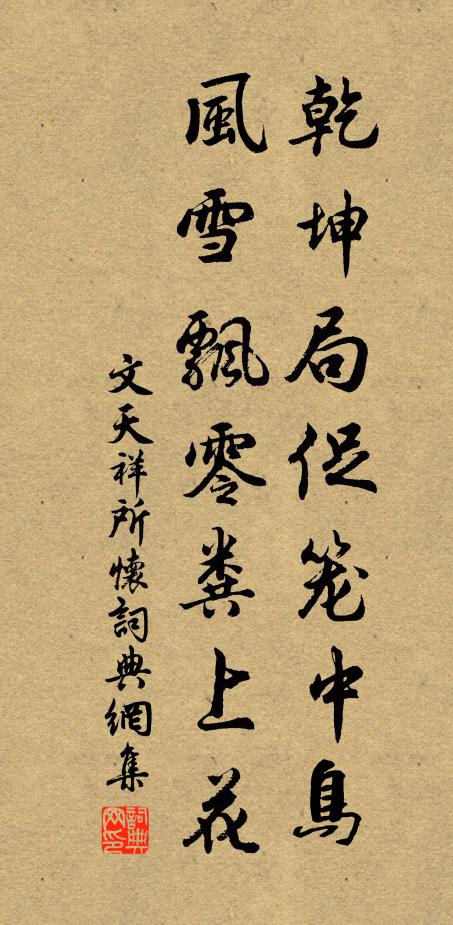 乾坤局促笼中鳥
風雪飄零糞上花
文天祥所懷詞典網集
詞典
网印